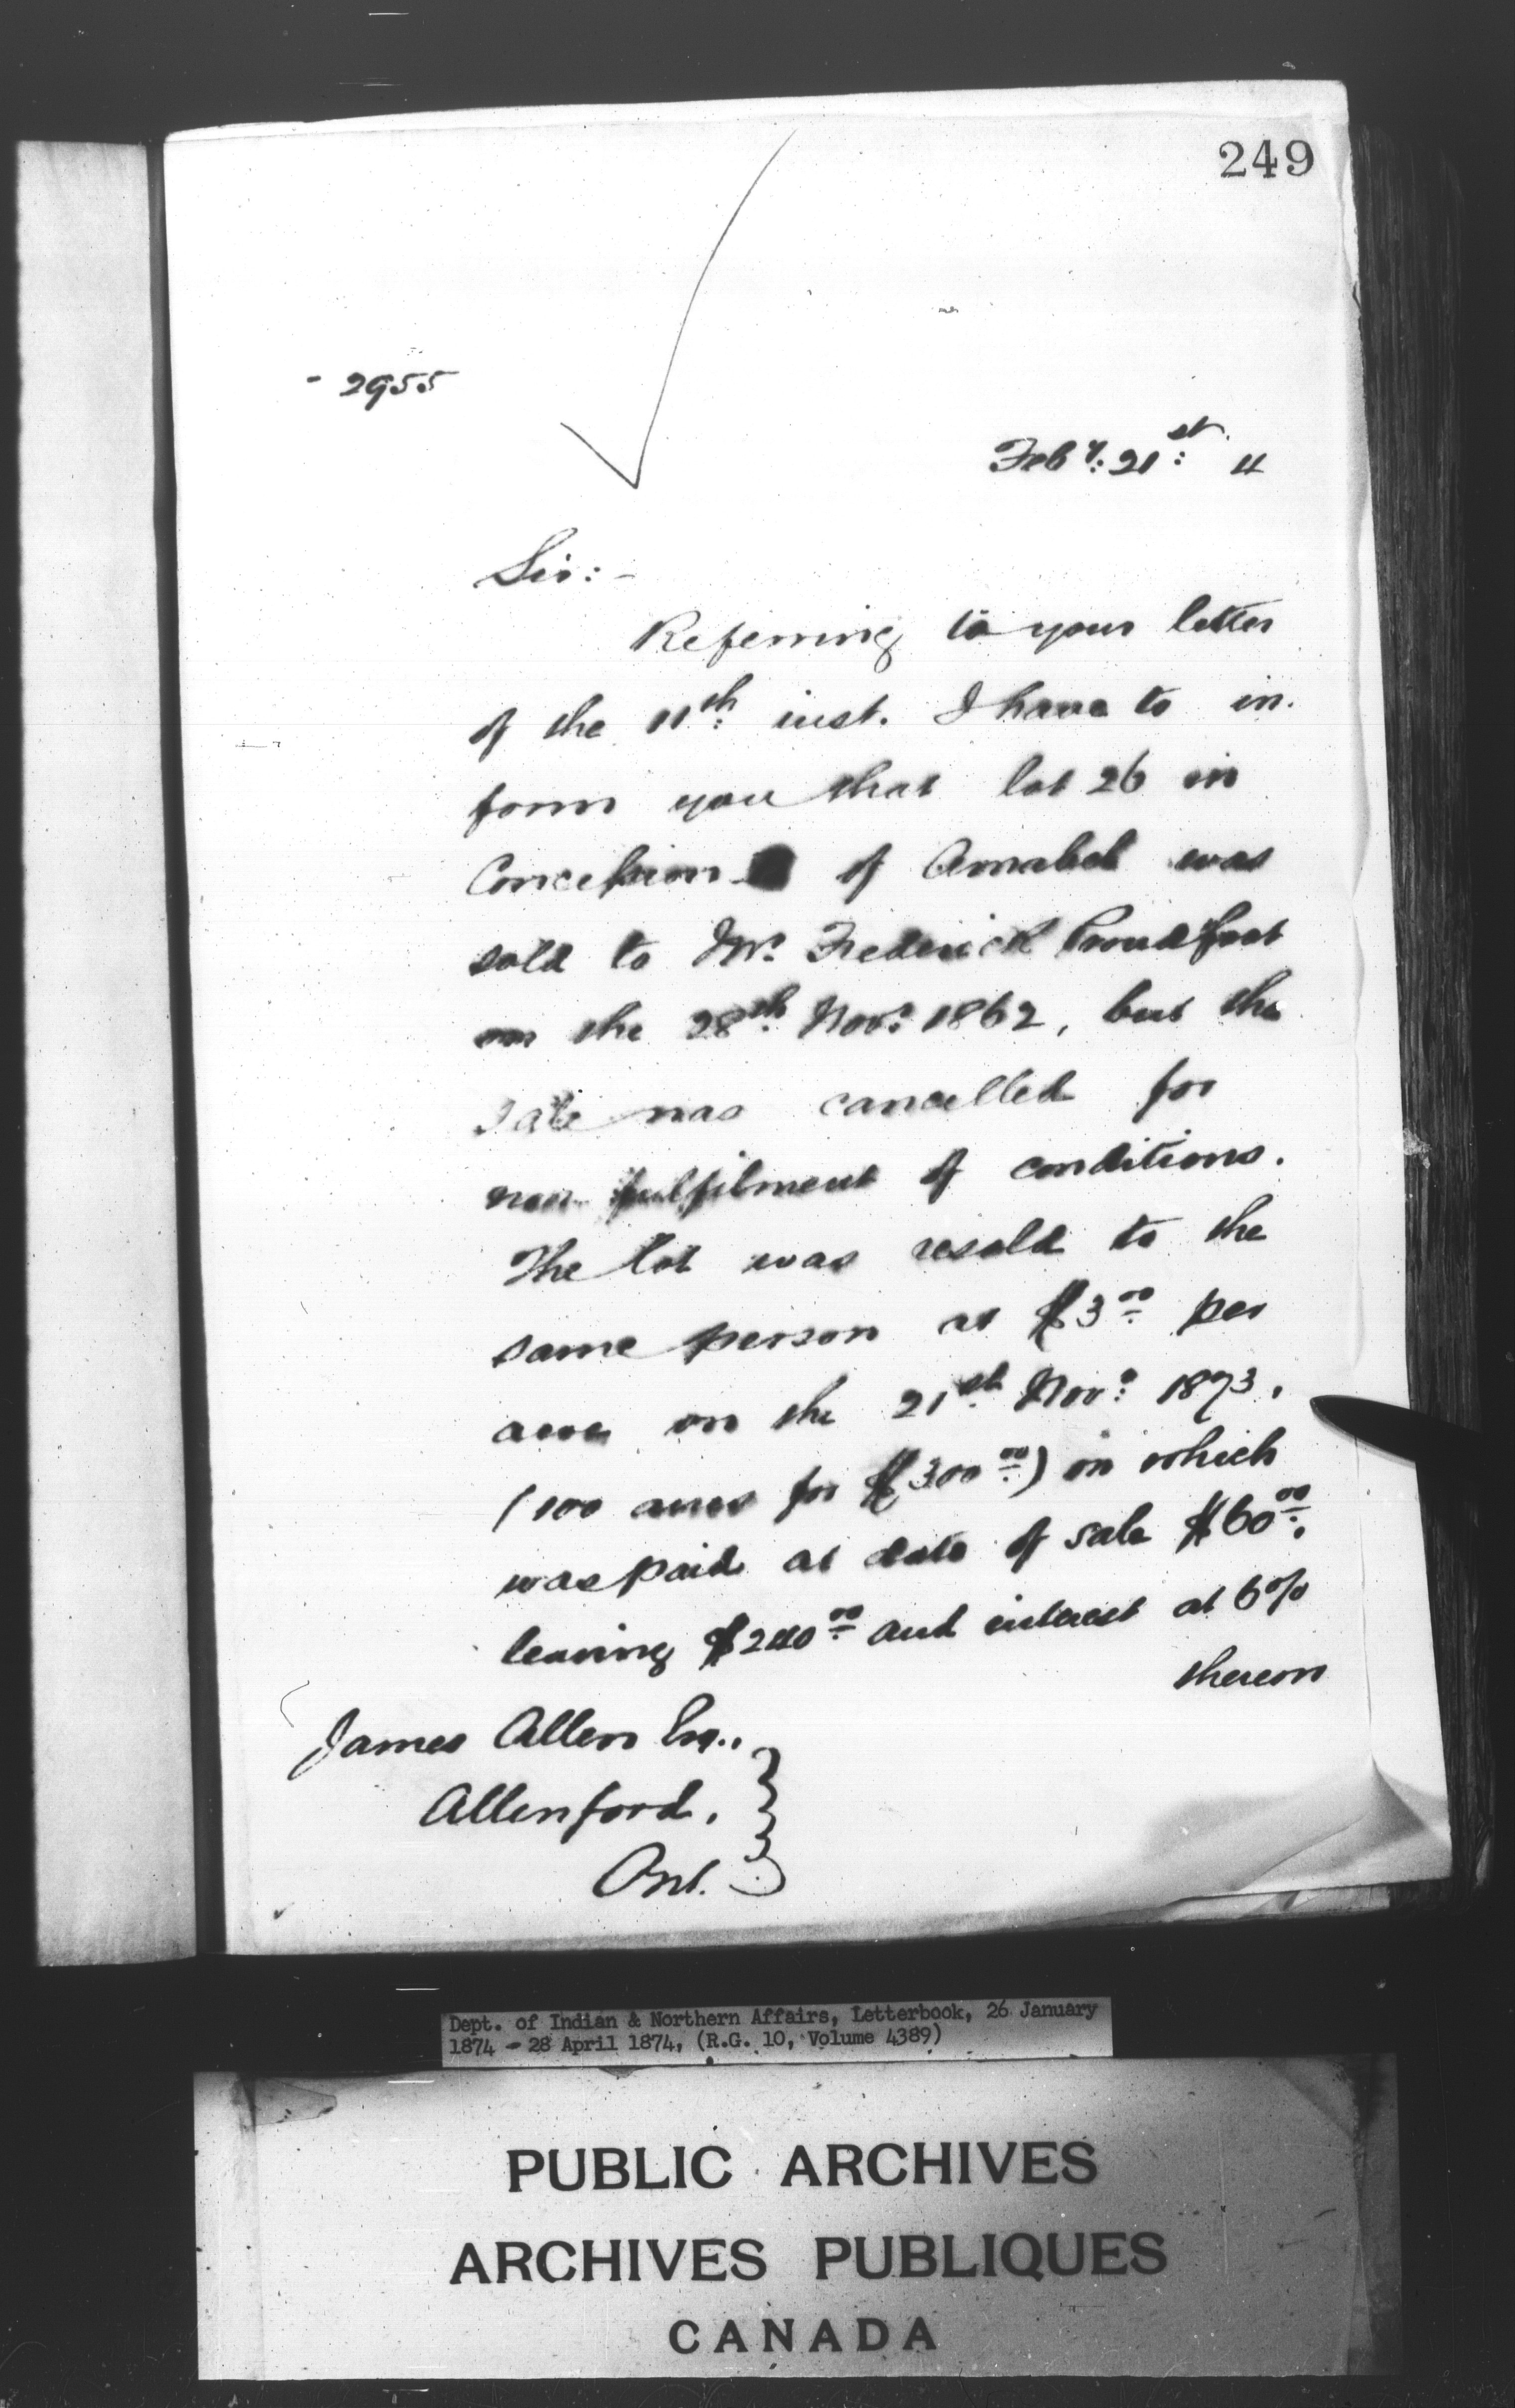 249
- 2955
Feby: 21st: 4
Sir:-
Referring to your letter
of the 11th: inst. I have to in-
form you that lot 26 in
Concession of Amabel was
sold to Mr. Frederick Proudfoot
on the 28th: Nov: 1862, but the
sale was cancelled for
non fulfilment of conditions.
The lot was resold to the
same person at $3.00 per
acre on the 21st: Nov: 1873,
(100 acres for $300.00) on which
was paid at date of sale $60.00,
leaving $240.00 and interest at 6%
thereon
James Allen Esq.,
Allenford,
Ont.
Dept. of Indian & Northern Affairs, Letterbook, 26 January
1874 - 28 April 1874, (R.G. 10, Volume 4389)
PUBLIC ARCHIVES
ARCHIVES PUBLIQUES
CANADA